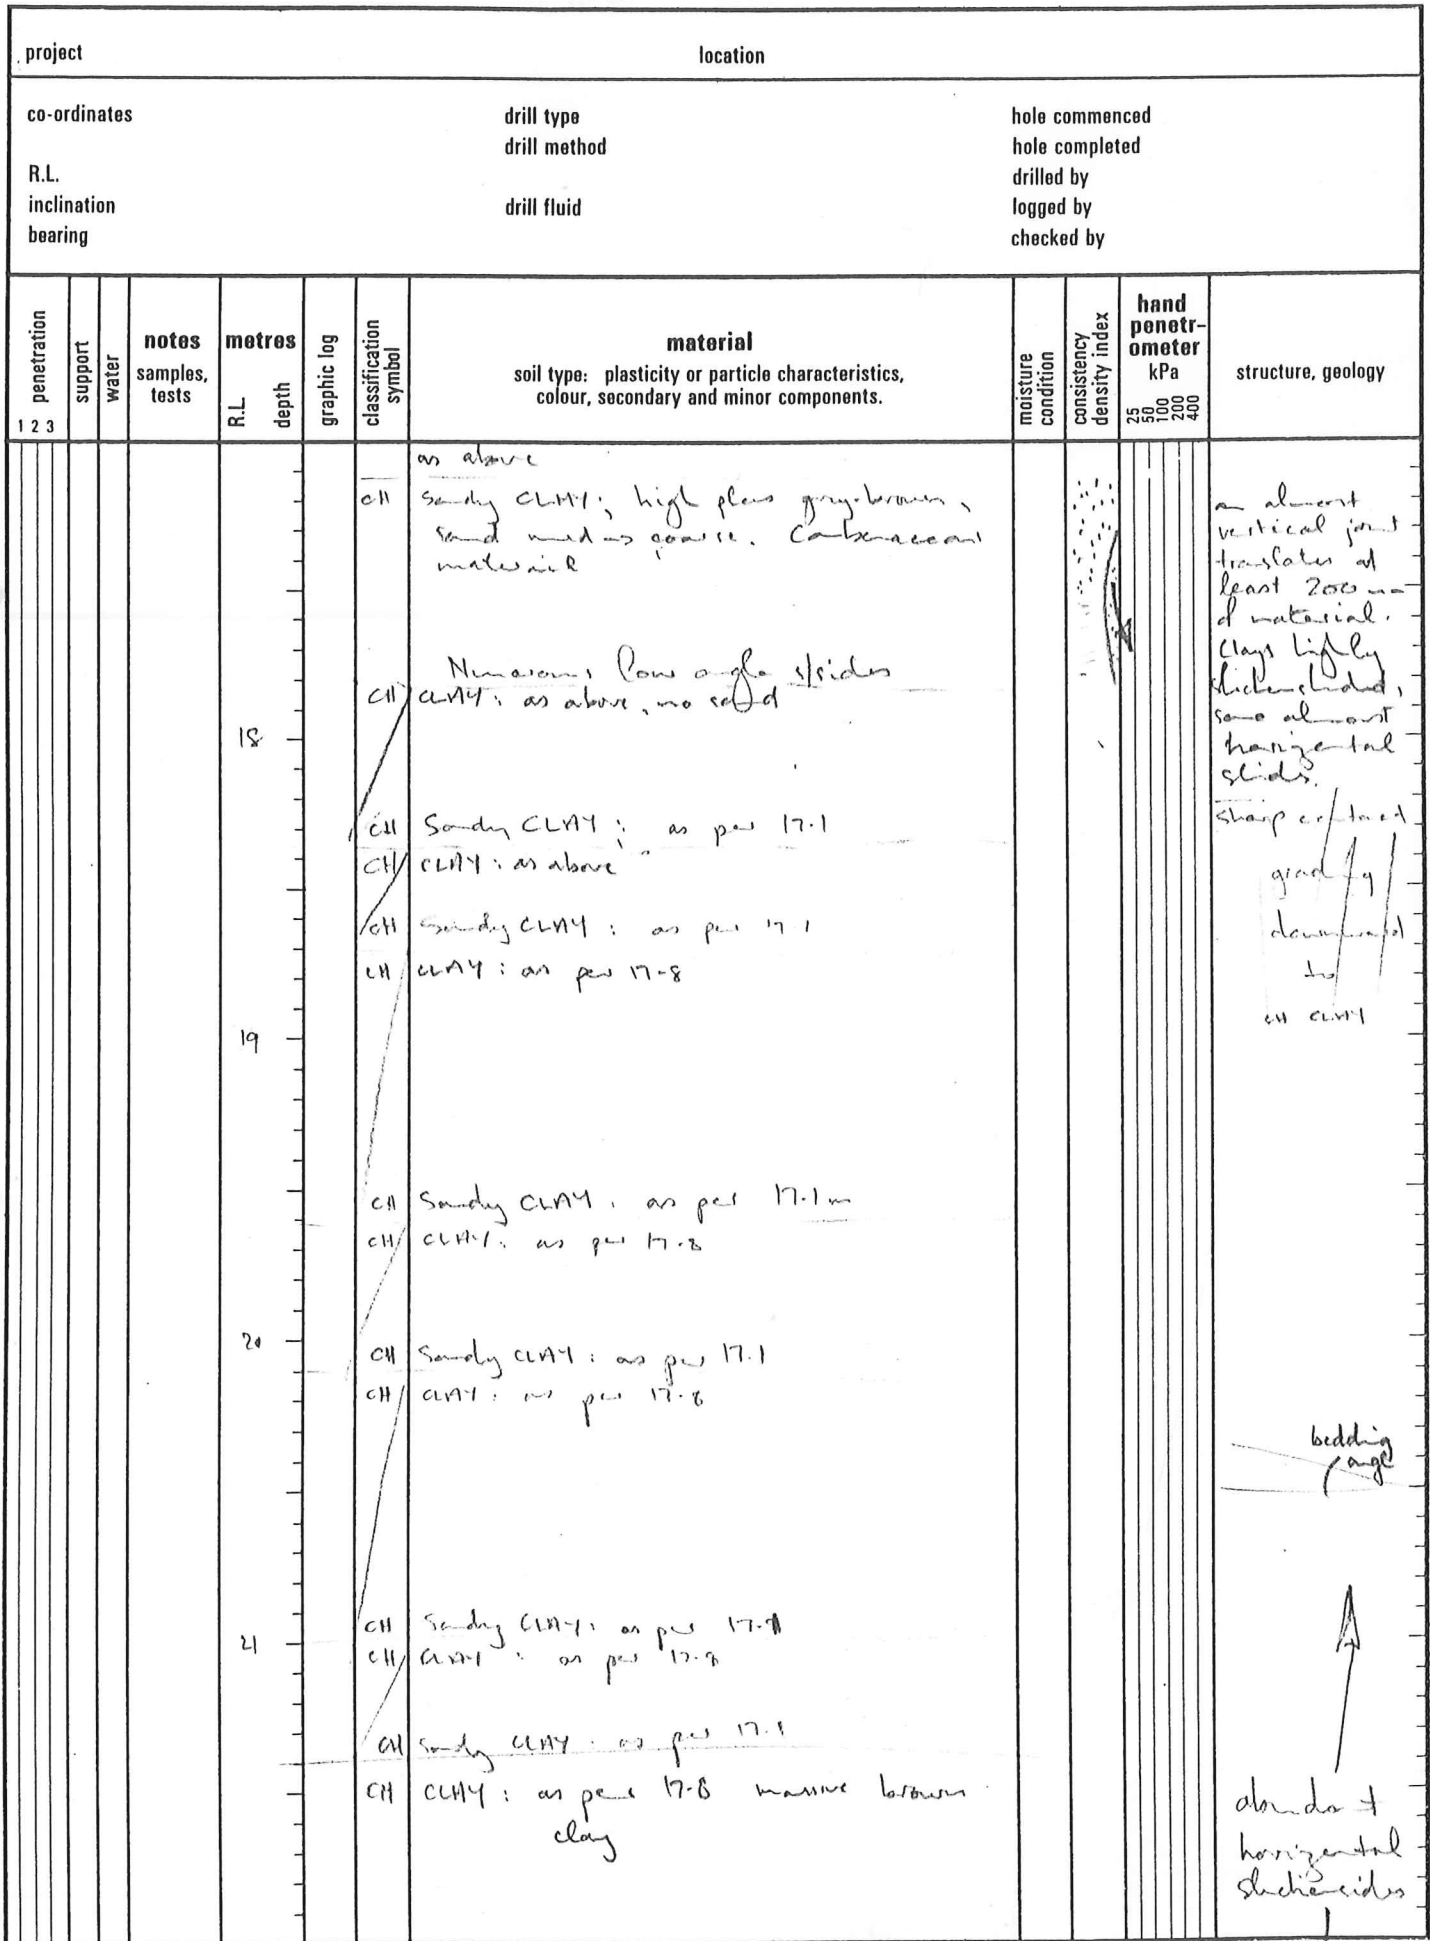 project location
co-ordinates drill type hole commenced
drill method hole completed
R.L. drilled by
inclination drill fluid logged by
bearing checked by
penetration
1 2 3
support
water
notes
samples,
tests
metres
R.L depth
graphic log
classification
symbol
material
soil type: plasticity or particle characteristics,
colour, secondary and minor components.
moisture
condition
consistency
density index
hand
penetr-
ometer
kPa
25
50
100
200
400
structure, geology
as above
CH Sandy CLAY; high plas grey-brown,
sand med as coarse. Carbonaceous
material
Numerous low angle s/sides
CH CLAY: as above, no sand
18
CH Sandy CLAY; as per 17.1
CH CLAY: as above
CH Sandy CLAY: as per 17.1
CH CLAY: as per 17.8
19
CH Sandy CLAY: as per 17.1m
CH CLAY: as per 17.8
20
CH Sandy CLAY: as per 17.1
CH CLAY: as per 17.8
CH Sandy CLAY: as per 17.1
21
CH CLAY: as per 17.8
CH Sandy CLAY: as per 17.1
CH CLAY: as per 17.8 massive brown
clay
an almost
vertical joint
translates at
least 200 mm
of material.
Clays highly
slickensided,
some almost
horizontal
slides.
sharp contact
grading
downward
to
CH CLAY
bedding
angle
abundant
horizontal
slickensides